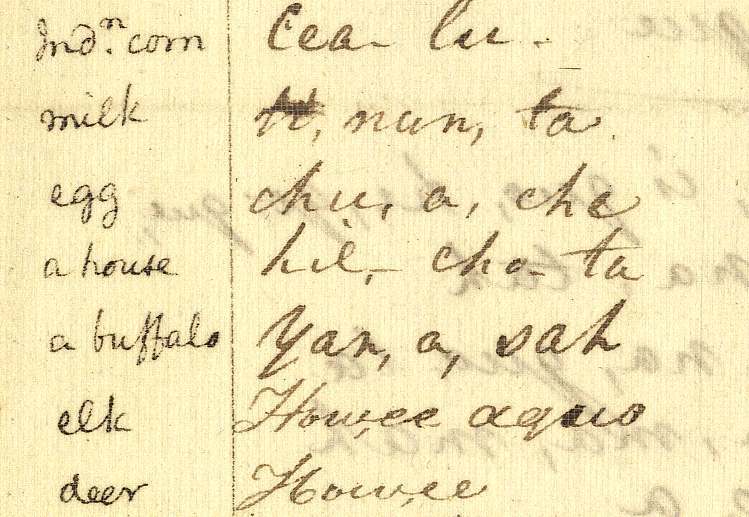 Ind.n corn Cea- lu-
milk nun, ta
egg chu, a, che
a house hil,- cho- ta
a buffalo Yan, a, sah
elk Howee aquo
deer Howee